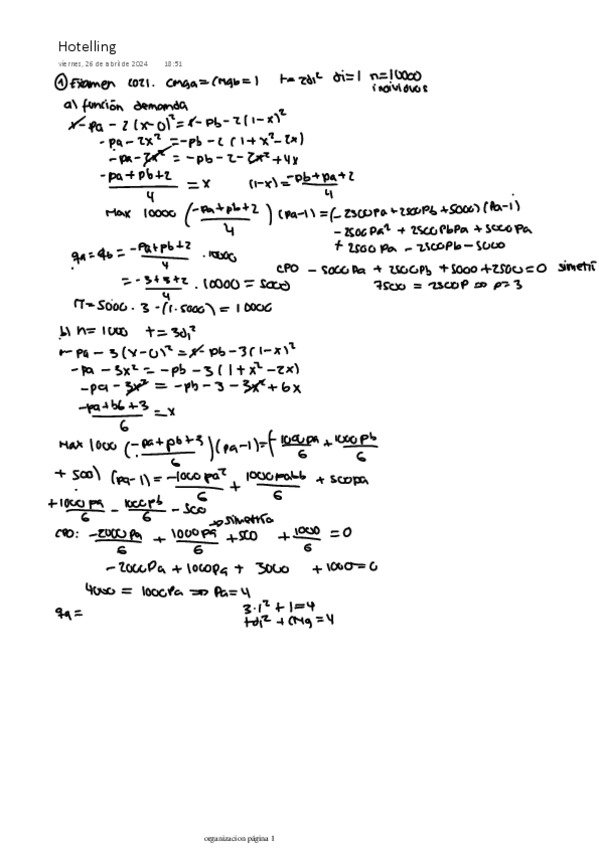 Hotelling
viernes, 26 de abril de 2024 18:51
① Examen 2021. CMga = CMgb = 1 t = 2di² di = 1 n = 10000 individuos
a) función demanda
r - Pa - 2(x-0)² = r - Pb - 2(1-x)²
-Pa - 2x² = -Pb - 2(1+x²-2x)
-Pa - 2x² = -Pb - 2 - 2x² + 4x
(-Pa+Pb+2)/4 = x (1-x) = (-Pb+Pa+2)/4
Max 10000 ((-Pa+Pb+2)/4)(Pa-1) = (-2500Pa + 2500Pb + 5000)(Pa-1)
-2500Pa² + 2500PbPa + 5000Pa
+ 2500Pa - 2500Pb - 5000
qa = qb = (-Pa+Pb+2)/4 · 10000
CPO -5000Pa + 2500Pb + 5000 + 2500 = 0 simetrí
= (-3+3+2)/4 · 10000 = 5000
7500 = 2500P ⇒ P = 3
π = 5000 · 3 - (1·5000) = 10000
b) n = 1000 t = 3di²
r - Pa - 3(x-0)² = r - Pb - 3(1-x)²
-Pa - 3x² = -Pb - 3(1+x²-2x)
-Pa - 3x² = -Pb - 3 - 3x² + 6x
(-Pa+Pb+3)/6 = x
Max 1000 ((-Pa+Pb+3)/6)(Pa-1) = (-1000Pa/6 + 1000Pb/6
+ 500)(Pa-1) = -1000Pa²/6 + 1000PaPb/6 + 500Pa
+ 1000Pa/6 - 1000Pb/6 - 500
→ simetría
CPO: -2000Pa/6 + 1000Pa/6 + 500 + 1000/6 = 0
-2000Pa + 1000Pa + 3000 + 1000 = 0
4000 = 1000Pa ⇒ Pa = 4
qa = 3·1² + 1 = 4
tdi² + CMg = 4
organizacion página 1